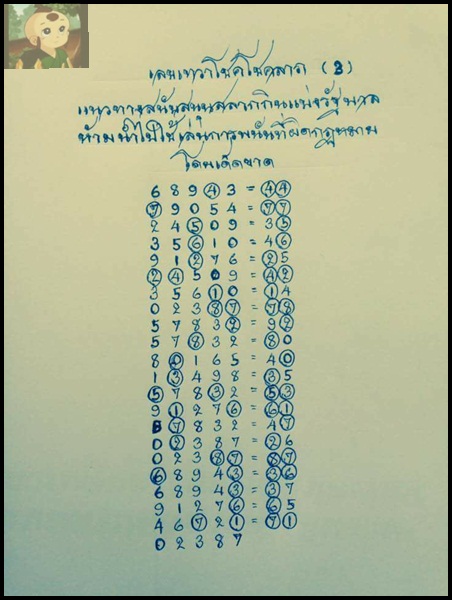 เลขเทวาโชคโชคลาภ (3)
แนวทางสนับสนุนสลากกินแบ่งรัฐบาล
ห้ามนำไปใช้เล่นการพนันที่ผิดกฎหมาย
โดยเด็ดขาด
6 8 9 4 3 = 4 4
7 9 0 5 4 = 7 7
2 4 5 0 9 = 3 5
3 5 6 1 0 = 4 6
9 1 2 7 6 = 2 5
2 4 5 0 9 = 4 2
3 5 6 1 0 = 1 4
0 2 3 8 7 = 7 8
5 7 8 3 2 = 9 2
5 7 8 3 2 = 8 0
8 0 1 6 5 = 4 0
1 3 4 9 8 = 3 5
5 7 8 3 2 = 5 3
9 1 2 7 6 = 6 1
5 7 8 3 2 = 4 7
0 2 3 8 7 = 2 6
0 2 3 8 7 = 8 7
6 8 9 4 3 = 3 6
6 8 9 4 3 = 3 7
9 1 2 7 6 = 6 5
4 6 7 2 1 = 7 1
0 2 3 8 7